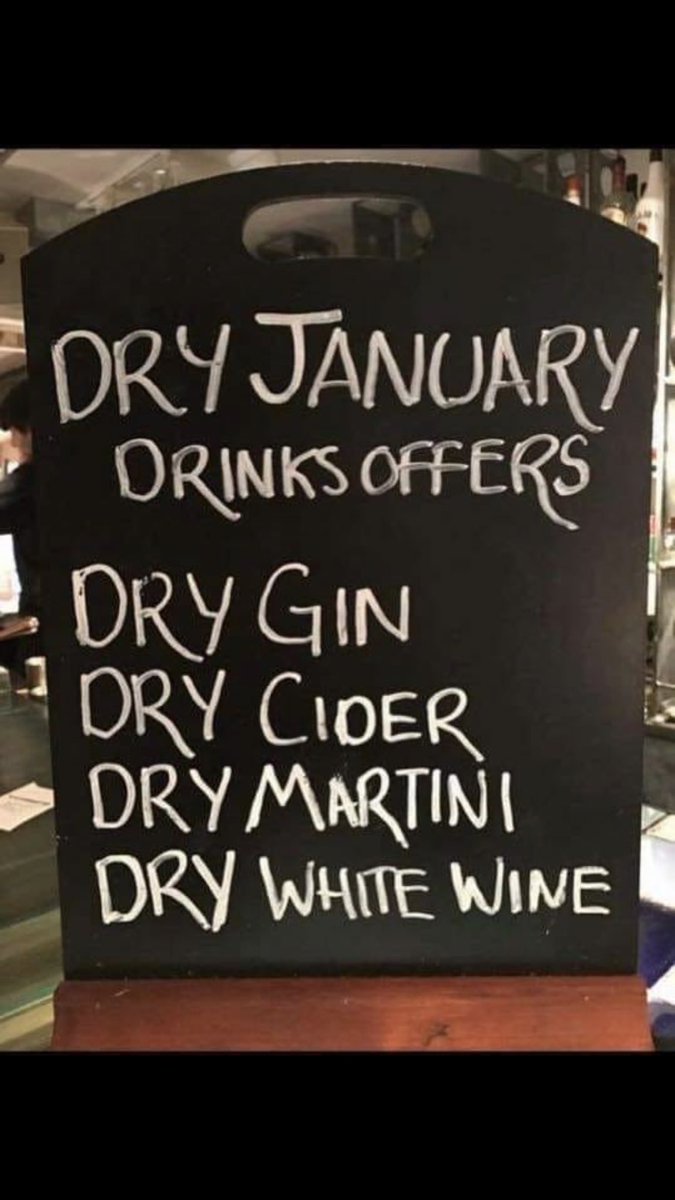 DRY JANUARY
DRINKS OFFERS
DRY GIN
DRY CIDER
DRY MARTINI
DRY WHITE WINE